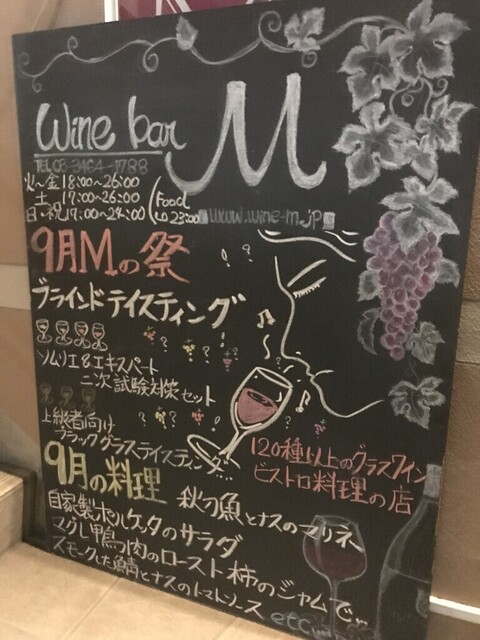 Wine bar M
TEL 03-3464-1788
火～金 18:00～26:00
土 17:00～26:00
日・祝 17:00～24:00
(Food
LO 23:00
www.wine-m.jp
9月Mの祭
ブラインドテイスティング
ソムリエ&エキスパート
二次試験対策セット
上級者向け
ブラックグラステイスティング
120種以上のグラスワイン
ビストロ料理の店
9月の料理
秋刀魚とナスのマリネ
自家製ポルケッタのサラダ
マグレ鴨肉のロースト 柿のジャムで…
スモークした鯖とナスのトマトソース
etc...